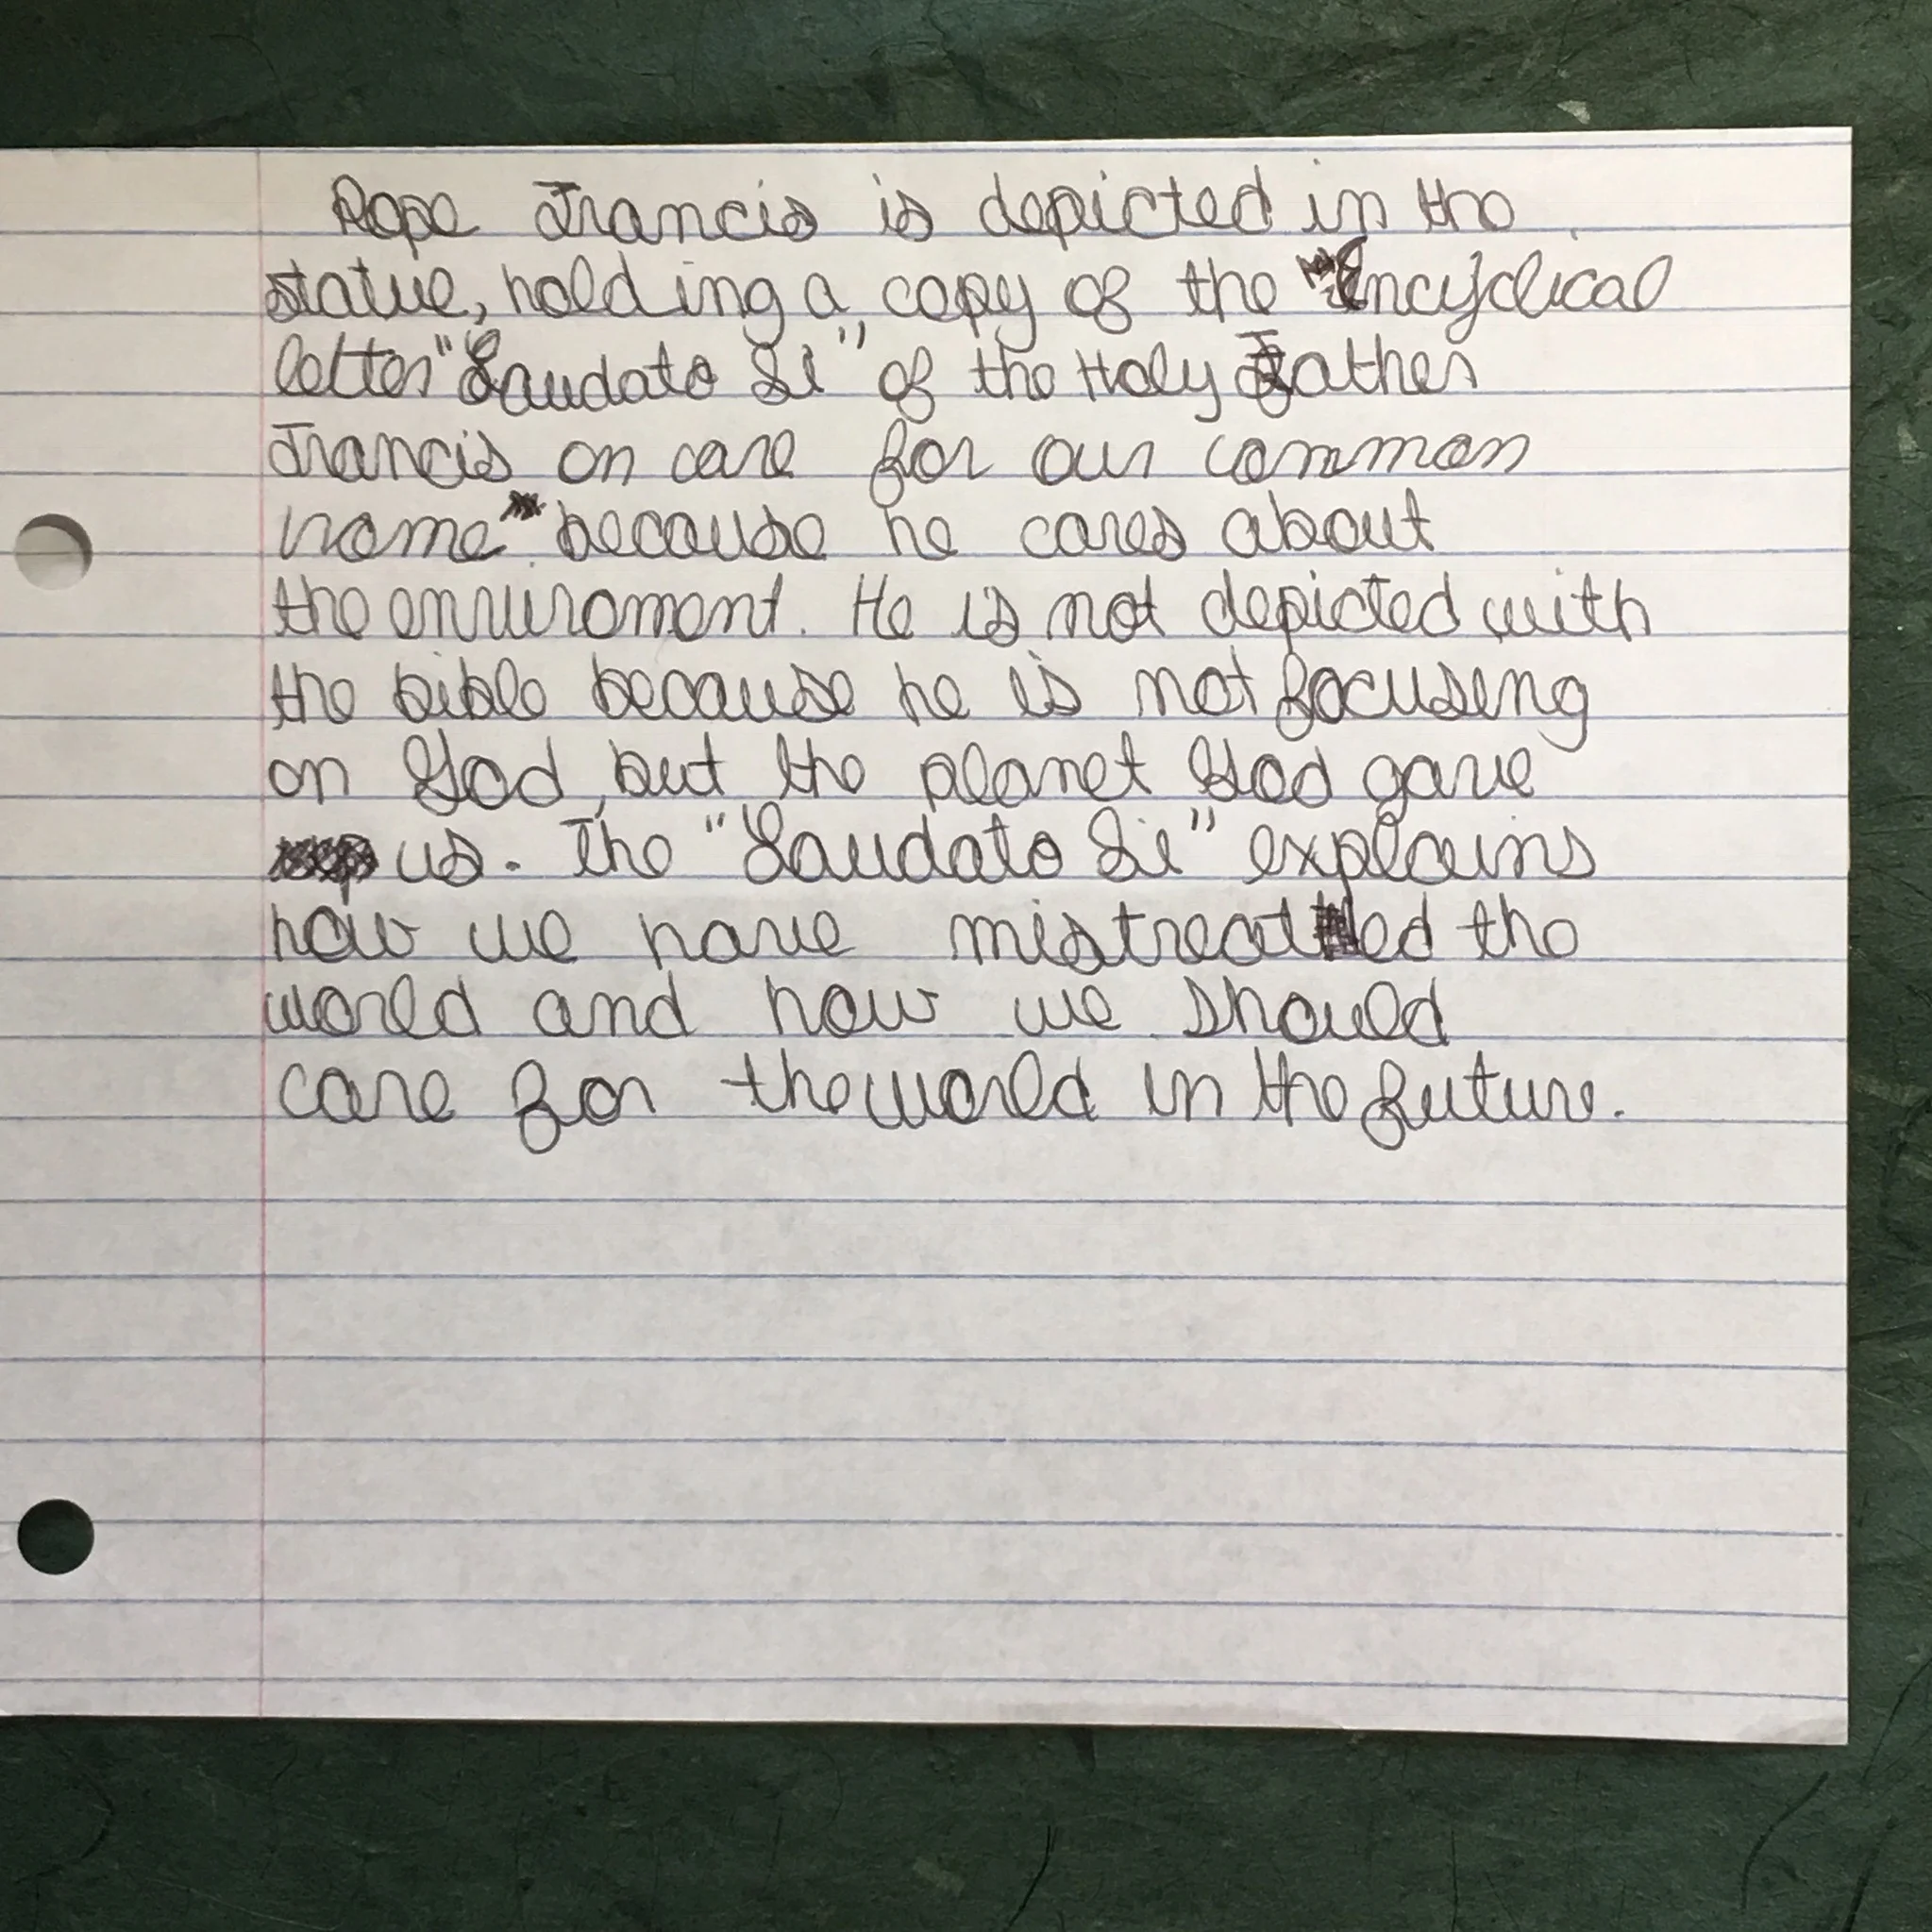 Pope Francis is depicted in the
statue, holding a copy of the Encyclical
letter "Laudato Si" of the Holy Father
Francis on care for our common
home because he cares about
the enviroment. He is not depicted with
the bible because he is not focusing
on God, but the planet God gave
us. The "Laudato Si" explains
how we have mistreated the
world and how we should
care for the world in the future.